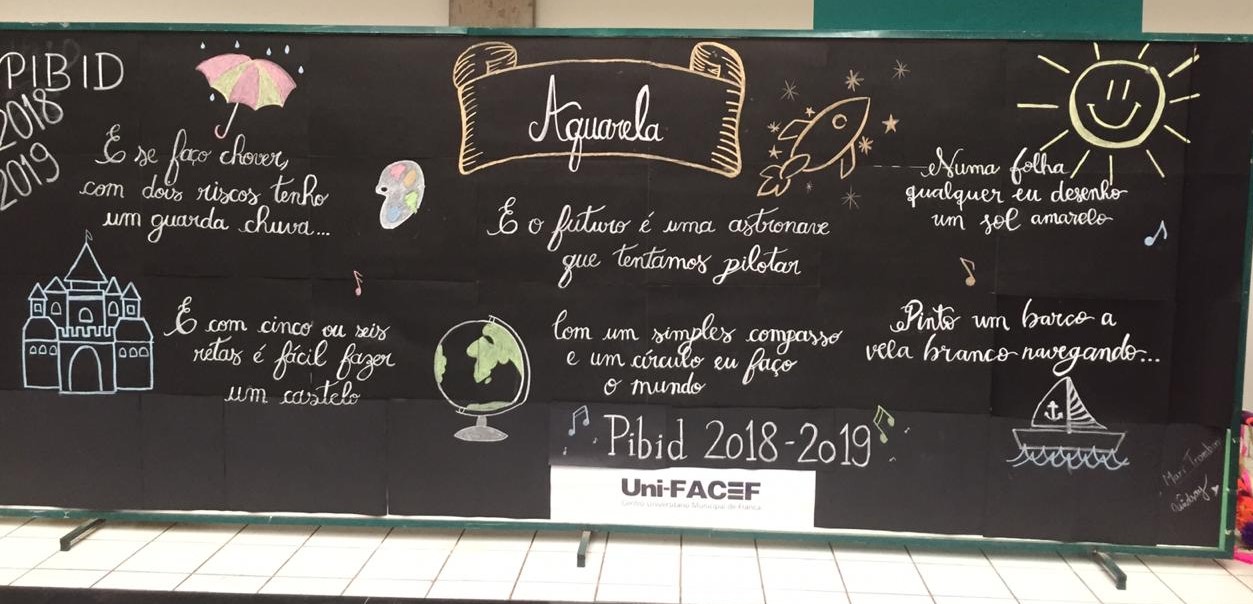 PIBID
2018
2019
E se faço chover,
com dois riscos tenho
um guarda chuva...
E com cinco ou seis
retas é fácil fazer
um castelo
Aquarela
E o futuro é uma astronave
que tentamos pilotar
Com um simples compasso
e um círculo eu faço
o mundo
Pibid 2018-2019
Uni-FACEF
Centro Universitário Municipal de Franca
Numa folha
qualquer eu desenho
um sol amarelo
Pinto um barco a
vela branco navegando...